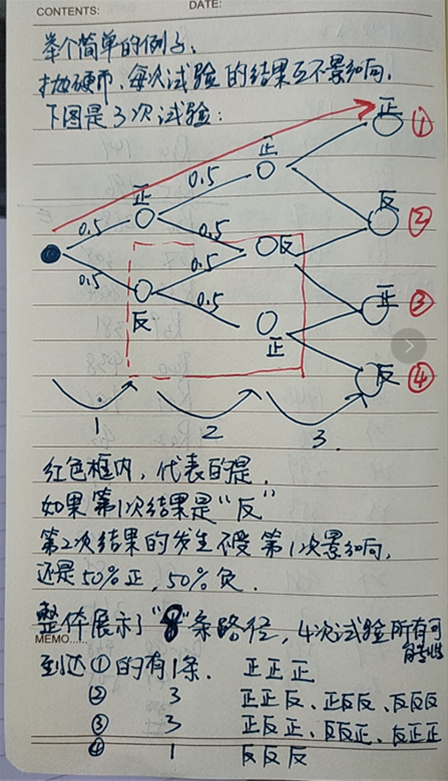 CONTENTS: DATE:
举个简单的例子、
抛硬币,每次试验的结果互不影响,
下图是3次试验:
正 ①
正
正 0.5
0.5 0.5 反 ②
反
0.5 0.5
0.5 正 ③
反 正
反 ④
1 2 3.
红色框内,代表的是,
如果第1次结果是“反”
第2次结果的发生不受第1次影响,
还是50%正,50%负.
整体展示了“8”条路径,4次试验所有可
MEMO......
到达①的有1条. 正正正
② 3 正正反、正反反、反反反
③ 3 正反正、反反正、反正正
④ 1 反反反